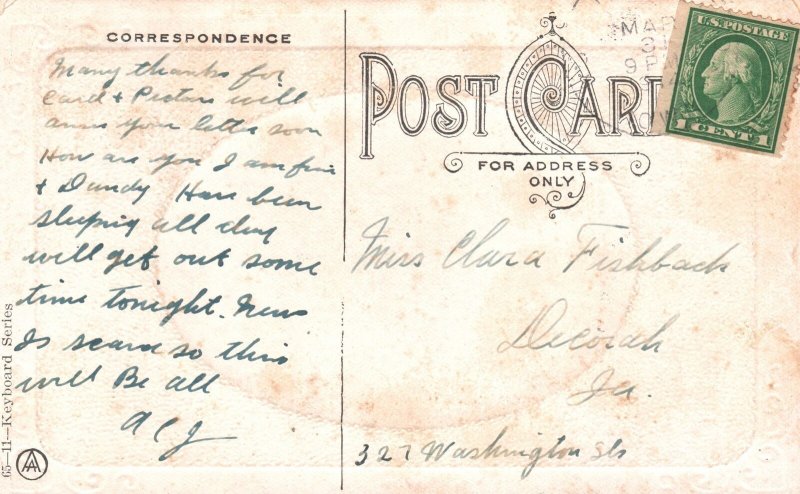 CORRESPONDENCE
Many thanks for
Card + Picture will
answ your letter soon
How are you I am fine
+ Dandy Have been
sleeping all day
will get out some
time tonight. News
Is scarce so this
will Be all
A C J
65-11—Keyboard Series
AA
POST CARD
FOR ADDRESS
ONLY
MAR
31
9 P
U.S. POSTAGE
1 CENT 1
Miss Clara Fishback
Decorah
Ia.
327 Washington St